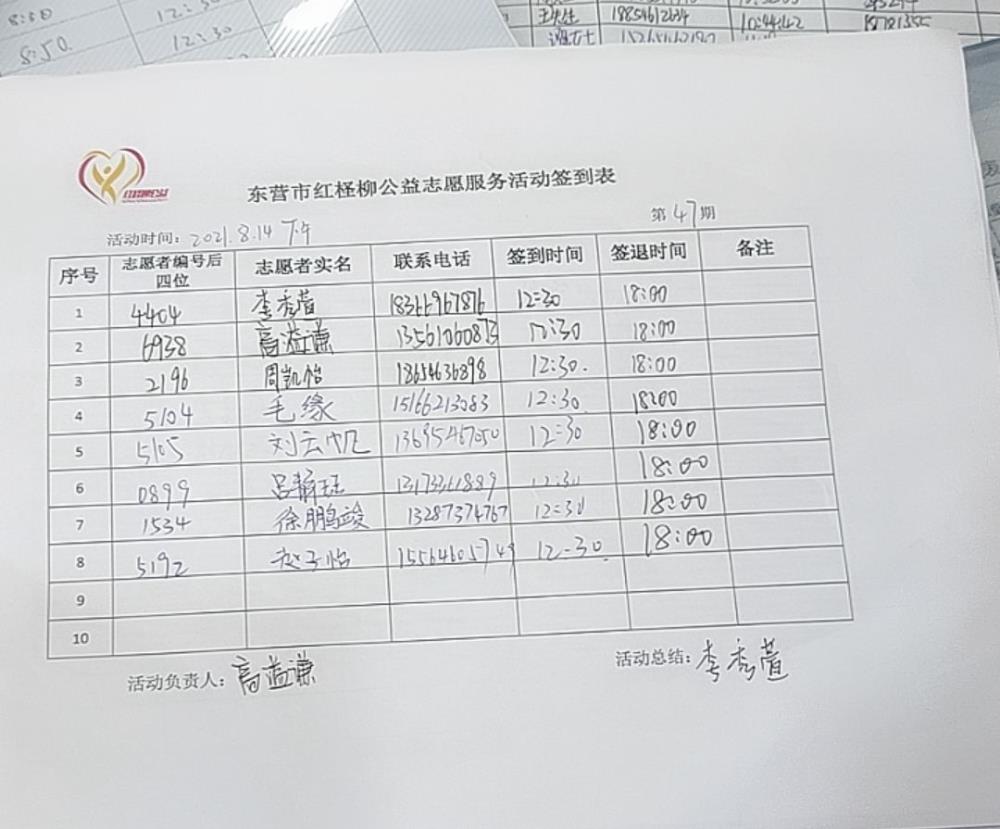 8:30 12:30
8:50 12:30
18854612684 10:44
东营市红柽柳公益志愿服务活动签到表
第47期
活动时间：2021.8.14 下午
序号 志愿者编号后四位 志愿者实名 联系电话 签到时间 签退时间 备注
1 4404 李秀萱 18366967876 12:30 18:00
2 6938 高溢谦 13561060873 12:30 18:00
3 2196 周凯怡 18654636898 12:30. 18:00
4 5104 毛缘 15166213083 12:30 18:00
5 5105 刘云帆 13695467050 12:30 18:00
6 0899 吕静珏 13173361889 12:30 18:00
7 1534 徐鹏竣 13287374767 12:30 18:00
8 5192 赵子怡 15564605749 12:30 18:00
9
10
活动负责人：高溢谦
活动总结：李秀萱